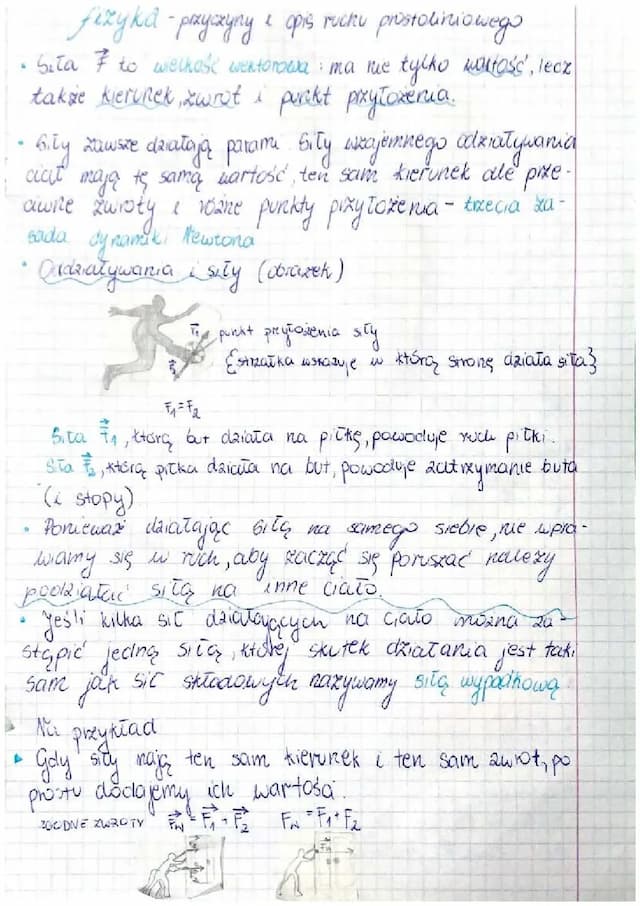 fizyka - przyczyny i opis ruchu prostoliniowego
• Siła F⃗ to wielkość wektorowa: ma nie tylko wartość, lecz
także kierunek, zwrot i punkt przyłożenia.
• Siły zawsze działają parami. Siły wzajemnego odziaływania
ciał mają tę samą wartość, ten sam kierunek ale prze-
ciwne zwroty i różne punkty przyłożenia - trzecia za-
sada dynamiki Newtona
• Oddziaływania i siły (obrazek)
F₁ punkt przyłożenia siły
F₂ {strzałka wskazuje w którą stronę działa siła}
F₁ = F₂
Siła F⃗₁, którą but działa na piłkę, powoduje ruch piłki.
Siła F⃗₂, którą piłka działa na but, powoduje zatrzymanie buta
(i stopy)
• Ponieważ działając siłą na samego siebie, nie wpra-
wiamy się w ruch, aby zacząć się poruszać należy
podziałać siłą na inne ciało.
• Jeśli kilka sił działających na ciało można za-
stąpić jedną siłą, której skutek działania jest taki
sam jak sił składowych nazywamy siłą wypadkową
Na przykład
▸ Gdy siły mają ten sam kierunek i ten sam zwrot, po
prostu dodajemy ich wartości.
ZGODNE ZWROTY F⃗w = F⃗₁ + F⃗₂ Fw = F₁ + F₂